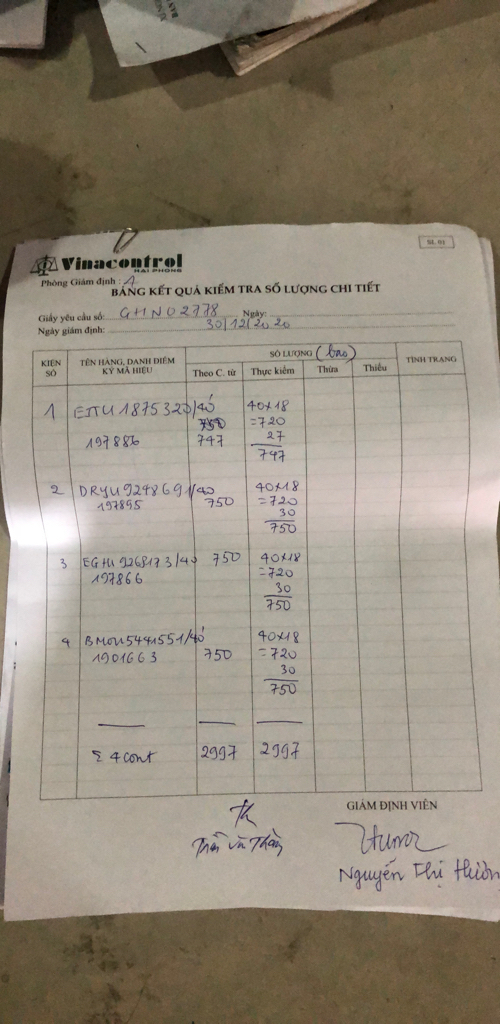 SL 01
Vinacontrol
HAI PHONG
Phòng Giám định : 1
BẢNG KẾT QUẢ KIỂM TRA SỐ LƯỢNG CHI TIẾT
Giấy yêu cầu số: GHN02778 Ngày:
Ngày giám định: 30/12/2020
KIỆN SỐ TÊN HÀNG, DANH ĐIỂM KÝ MÃ HIỆU SỐ LƯỢNG (bao) TÌNH TRẠNG
Theo C. từ Thực kiểm Thừa Thiếu
1 EITU1875320/40' 750 40x18
=720
197886 747 27
747
2 DRYU9278691/40 40x18
197895 750 =720
30
750
3 EGHU9268173/40 750 40x18
197866 =720
30
750
4 BMOU5441551/40' 40x18
1901663 750 =720
30
750
Σ 4cont 2997 2997
GIÁM ĐỊNH VIÊN
Nguyễn Thị Hươn